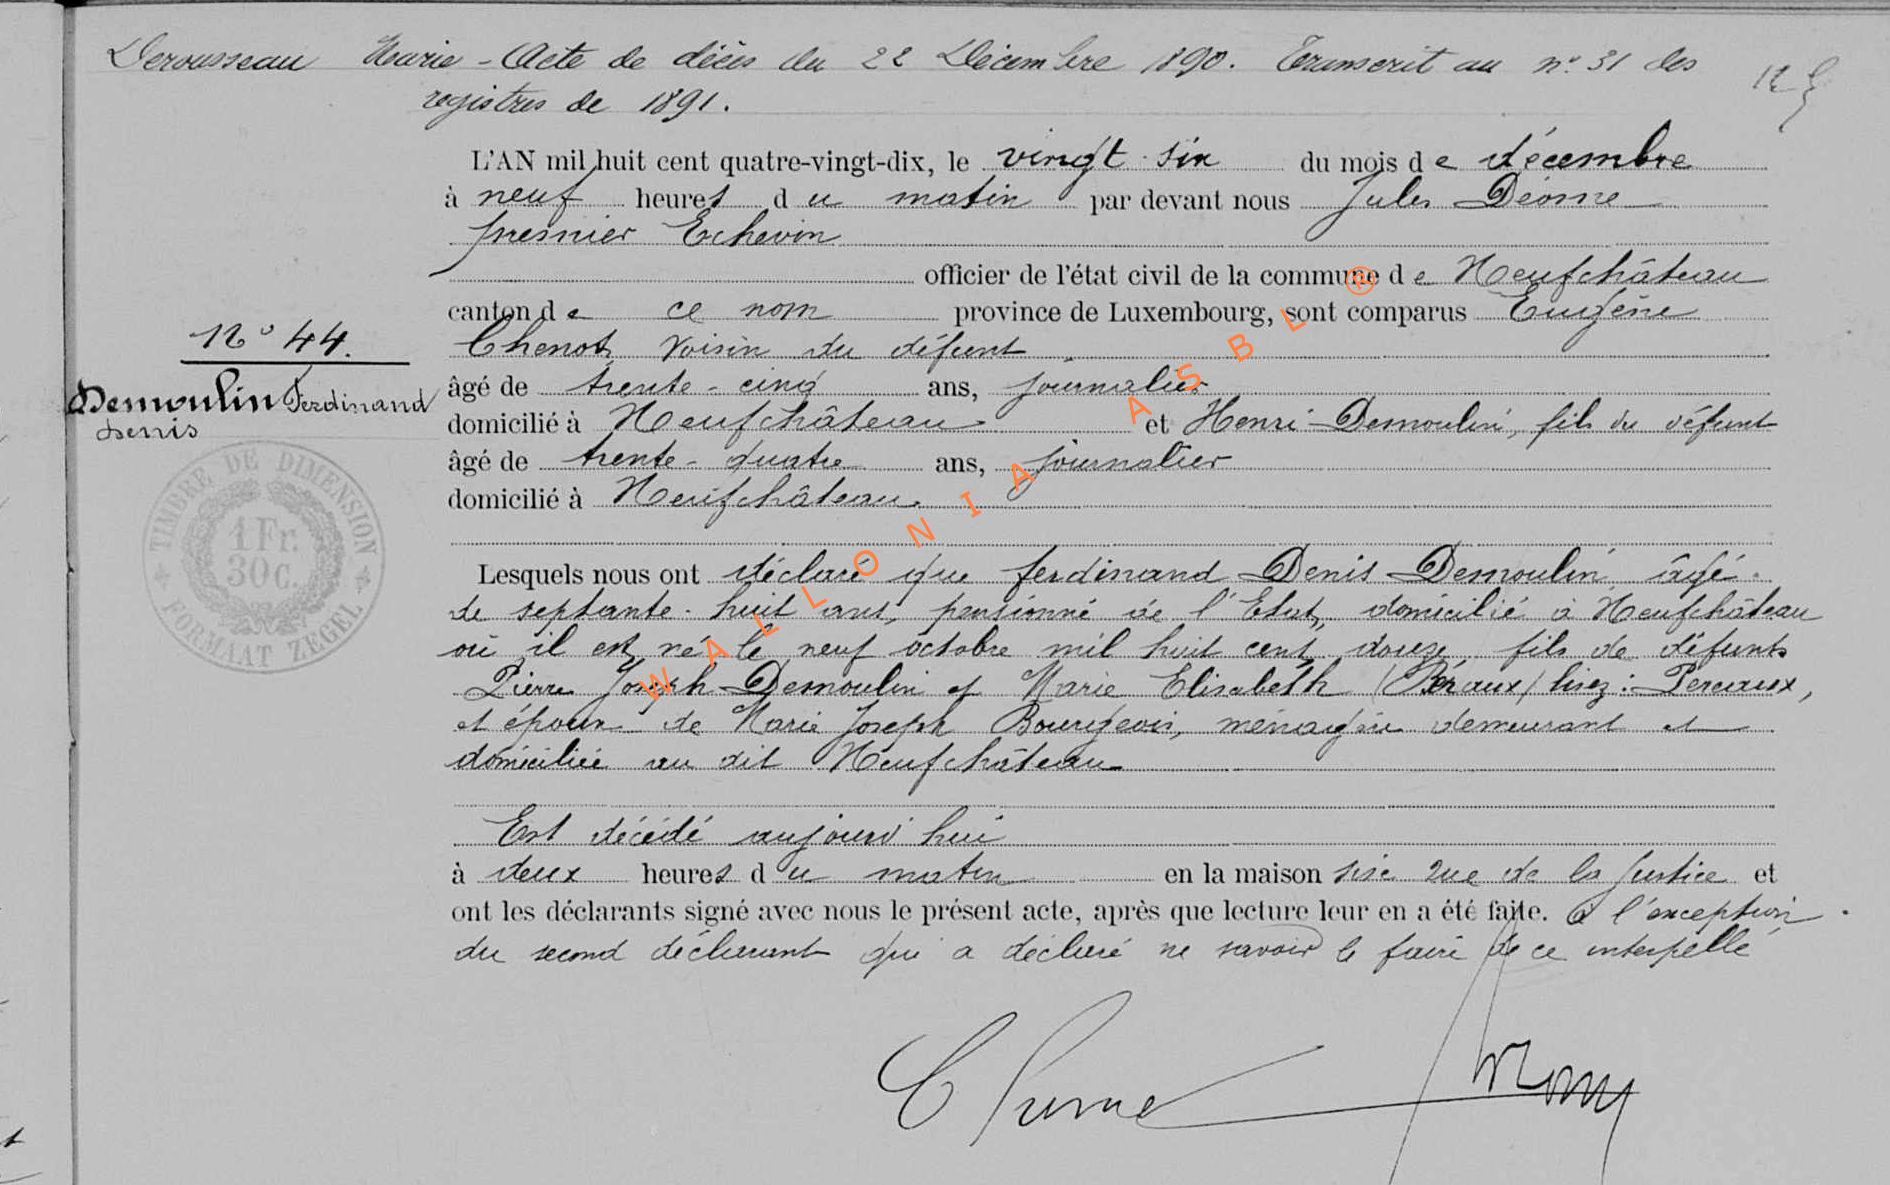 Derousseau Marie - Acte de décès du 22 Décembre 1890. Transcrit au n° 31 des
registres de 1891.
L'AN mil huit cent quatre-vingt-dix, le vingt-six du mois de décembre
à neuf heures du matin par devant nous Jules Déome
premier Echevin
officier de l'état civil de la commune de Neufchâteau
canton de ce nom province de Luxembourg, sont comparus Eugène
Chenot, voisin du défunt
âgé de trente-cinq ans, journalier
domicilié à Neufchâteau et Henri Demoulin, fils du défunt
âgé de trente-quatre ans, journalier
domicilié à Neufchâteau.
N° 44.
Demoulin Ferdinand
Denis
TIMBRE DE DIMENSION
1 Fr.
30 C.
FORMAAT ZEGEL
Lesquels nous ont déclaré que ferdinand Denis Demoulin, âgé
de septante-huit ans, pensionné de l'Etat, domicilié à Neufchâteau
où il est né le neuf octobre mil huit cent douze, fils de défunts
Pierre Joseph Demoulin et Marie Elisabeth (Peraux) lisez : Pereaux,
et époux de Marie Joseph Bourgeois, ménagère demeurant et
domiciliée au dit Neufchâteau
Est décédé aujourd'hui
à deux heures du matin en la maison sise rue de la Justice et
ont les déclarants signé avec nous le présent acte, après que lecture leur en a été faite. à l'exception
du second déclarant qui a déclaré ne savoir le faire de ce interpellé
WALLONIA ASBL ®